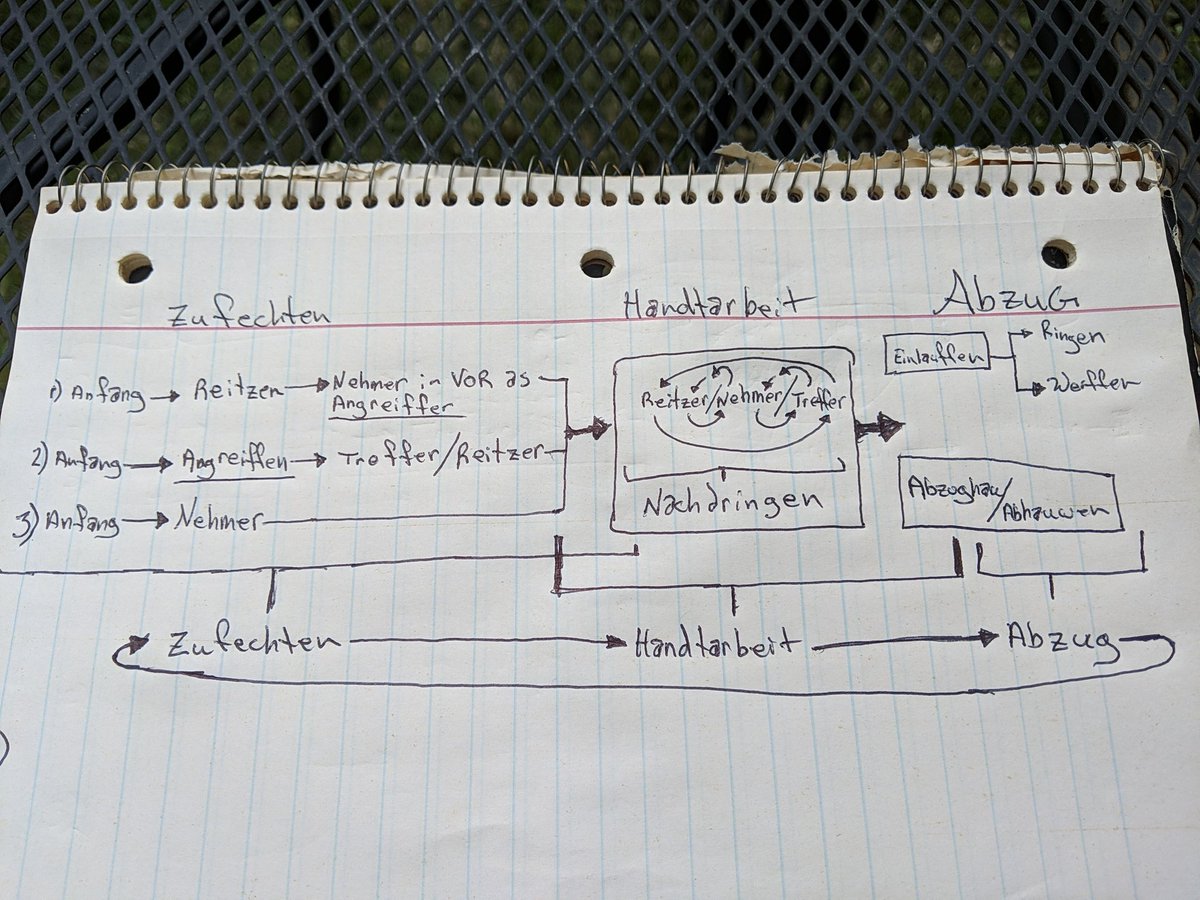 Zufechten
Handtarbeit
Abzug
1) Anfang → Reitzen → Nehmer in VOR as
Angreiffer
2) Anfang → Angreiffen → Treffer/Reitzer
3) Anfang → Nehmer
Reitzer/Nehmer/Treffer
Nachdringen
Einlauffen
Ringen
Werffen
Abzughau/
Abhauwen
Zufechten → Handtarbeit → Abzug